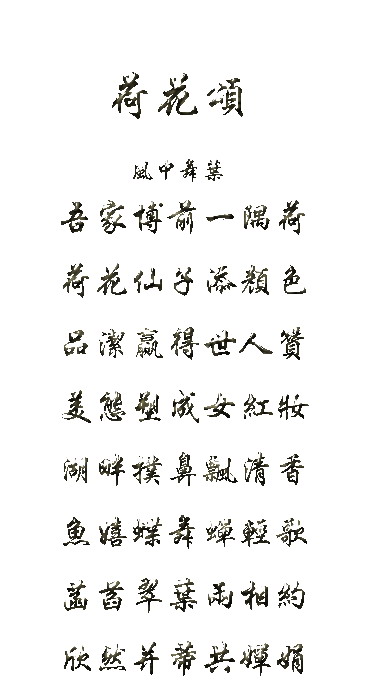 荷花頌
風中舞葉
吾家博前一隅荷
荷花仙子添顏色
品潔贏得世人贊
美態塑成女紅妝
湖畔撲鼻飄清香
魚嬉蝶舞蟬輕歌
菡萏翠葉兩相約
欣然并蒂共嬋娟